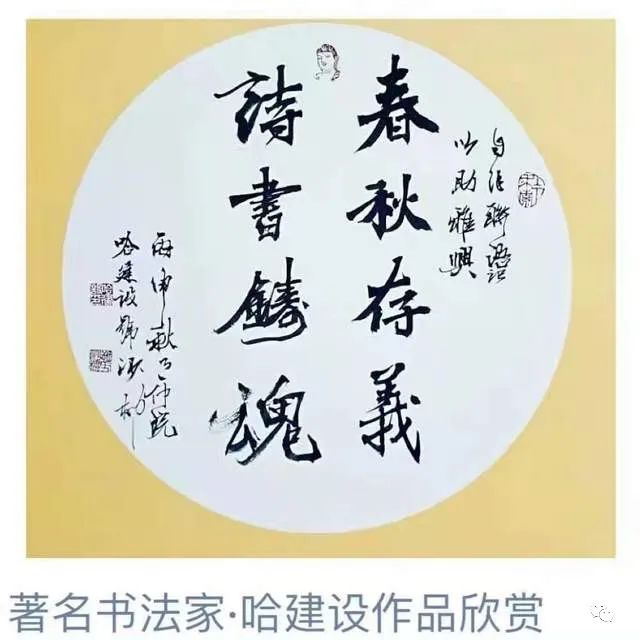 春秋存義
詩書鑄魂
自作聯語
以助雅興
丙申秋月
哈建設號
著名书法家·哈建设作品欣赏